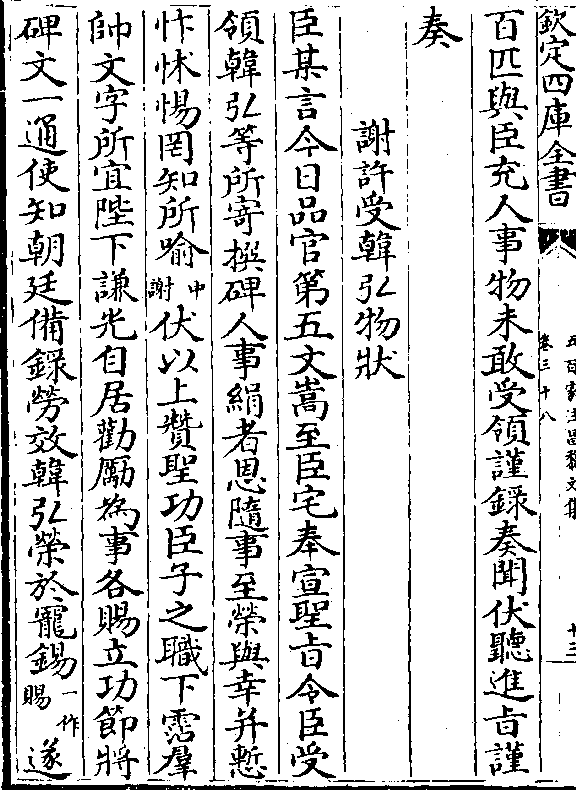 欽定四庫全書
五百家注昌黎文集
卷三十八
十三
百匹與臣充人事物未敢受領謹錄奏聞伏聽進旨謹
奏
謝許受韓弘物狀
臣某言今日品官第五文嵩至臣宅奉宣聖旨令臣受
領韓弘等所寄撰碑人事絹者恩隨事至榮與幸并慙
忭怵惕罔知所喻中謝伏以上贊聖功臣子之職下霑羣
帥文字所宜陛下謙光自居勸勵為事各賜立功節將
碑文一通使知朝廷備錄勞效韓弘榮於寵錫一作賜遂